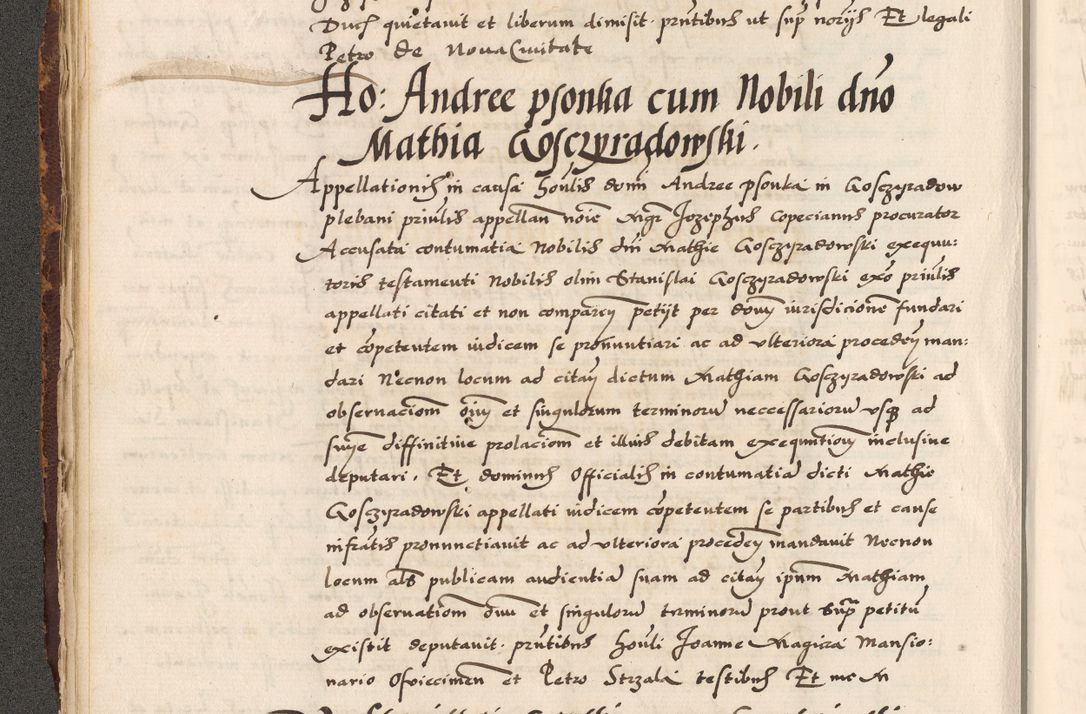 Duch quietavit et liberum dimisit prntibus ut supr norijs Et legali
Petro de Nova Civitate
Ho: Andree psonka cum Nobili dno
Mathia Gosczyradowski.
Appellationis in causa honlis domi Andree psonka in Gosczyradow
plebani prinlis appellan noie Mgr Jozephus Copecianus procurator
Accusata contumatia Nobilis dni Mathie Gosczyradowski exequu:
toris testamenti Nobilis olim Stanislai Gosczyradowski exo prinlis
appellati citati et non comparen petijt per donum iurisdicione fundari
et copetentem iudicem se pronuntiari ac ad ulteriora proceden man:
dari Necnon locum ad citan dictum Mathiam Gosczyradowski ad
observaciom oium et singulorum terminoru neccessarioru usq ad
suye diffinitive prolaciom et illius debitam exequutiom inclusive
deputari. Et dominus Officialis in contumatia dicti Mathie
Gosczyradowski appellati iudicem copetentem se partibus et cause
infratis pronunctiavit ac ad ulteriora proceden mandavit Necnon
locum als publicam audientia suam ad citan ipum Mathiam
ad observatiom oium et singuloru terminoru prout supra petitu
existit deputavit. prntibus honli Joanne Magura Mansio:
nario Osviecimen et Petro Strzala testibus Et me N